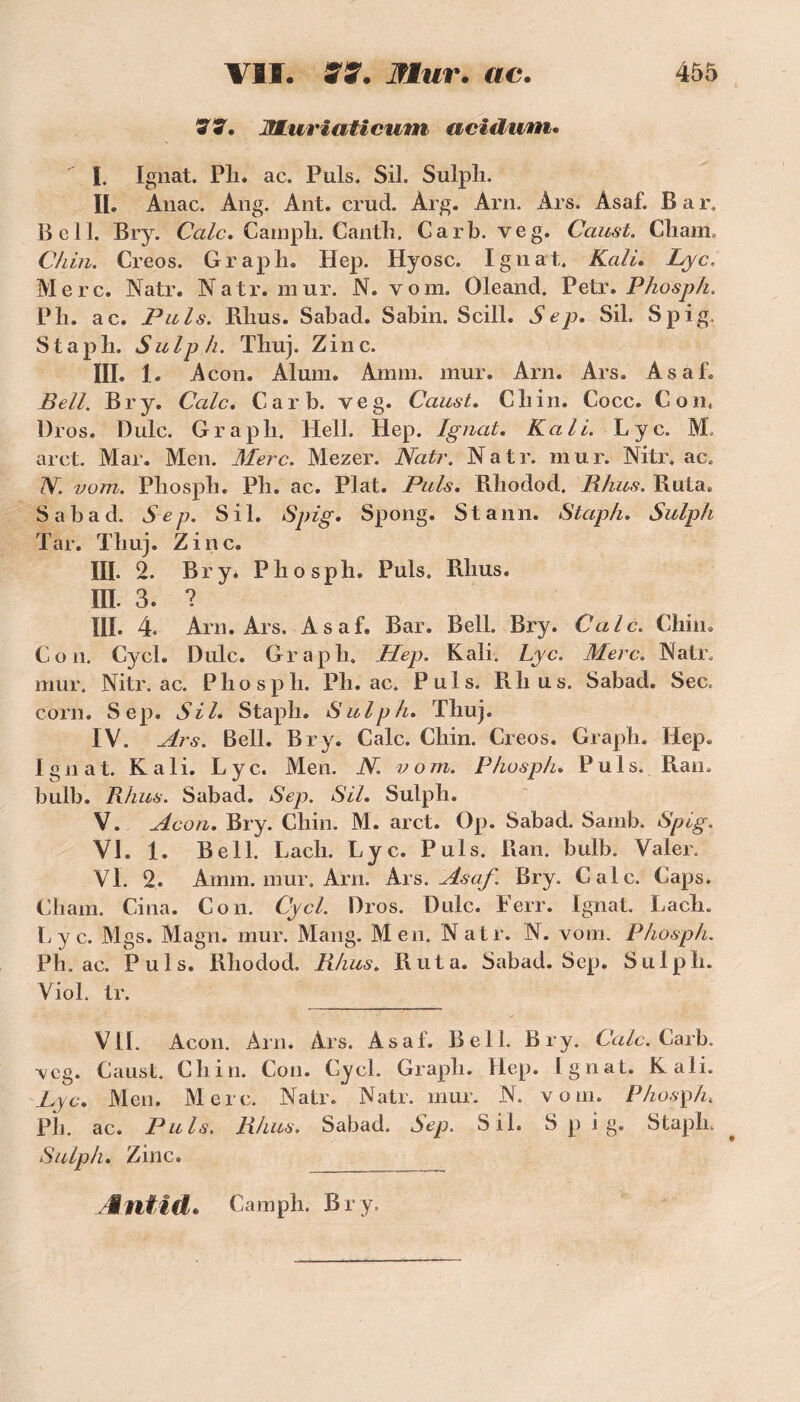 VII. 77. Mur. ac. 455
77. Muriaticum acidum.
I. Ignat. Ph. ac. Puls. Sil. Sulph.
II. Anac. Ang. Ant. crud. Arg. Arn. Ars. Asaf. Bar.
Bell. Bry. Calc. Camph. Canth. Carb. veg. Caust. Cham.
Chin. Creos. Graph. Hep. Hyosc. Ignat. Kali. Lyc.
Merc. Natr. Natr. mur. N. vom. Oleand. Petr. Phosph.
Ph. ac. Puls. Rhus. Sabad. Sabin. Scill. Sep. Sil. Spig.
Staph. Sulph. Thuj. Zinc.
III. 1. Acon. Alum. Amm. mur. Arn. Ars. Asaf.
Bell. Bry. Calc. Carb. veg. Caust. Chin. Cocc. Con.
Dros. Dulc. Graph. Hell. Hep. Ignat. Kali. Lyc. M.
arct. Mar. Men. Merc. Mezer. Natr. Natr. mur. Nitr. ac.
N. vom. Phosph. Ph. ac. Plat. Puls. Rhodod. Rhus. Ruta.
Sabad. Sep. Sil. Spig. Spong. Stann. Staph. Sulph
Tar. Thuj. Zinc.
III. 2. Bry. Phosph. Puls. Rhus.
III. 3. ?
III. 4. Arn. Ars. Asaf. Bar. Bell. Bry. Calc. Chin.
Con. Cycl. Dulc. Graph. Hep. Kali. Lyc. Merc. Natr.
mur. Nitr. ac. Phosph. Ph. ac. Puls. Rhus. Sabad. Sec.
corn. Sep. Sil. Staph. Sulph. Thuj.
IV. Ars. Bell. Bry. Calc. Chin. Creos. Graph. Hep.
Ignat. Kali. Lyc. Men. N. vom. Phosph. Puls. Ran.
bulb. Rhus. Sabad. Sep. Sil. Sulph.
V. Acon. Bry. Chin. M. arct. Op. Sabad. Samb. Spig.
VI. 1. Bell. Lach. Lyc. Puls. Ran. bulb. Valer.
VI. 2. Amm. mur. Arn. Ars. Asaf. Bry. Calc. Caps.
Cham. Cina. Con. Cycl. Dros. Dulc. Ferr. Ignat. Lach.
Lyc. Mgs. Magn. mur. Mang. Men. Natr. N. vom. Phosph.
Ph. ac. Puls. Rhodod. Rhus. Ruta. Sabad. Sep. Sulph.
Viol. tr.
VII. Acon. Arn. Ars. Asaf. Bell. Bry. Calc. Carb.
veg. Caust. Chin. Con. Cycl. Graph. Hep. Ignat. Kali.
Lyc. Men. Merc. Natr. Natr. mur. N. vom. Phosph.
Ph. ac. Puls. Rhus. Sabad. Sep. Sil. Spig. Staph.
Sulph. Zinc.
Antid. Camph. Bry.